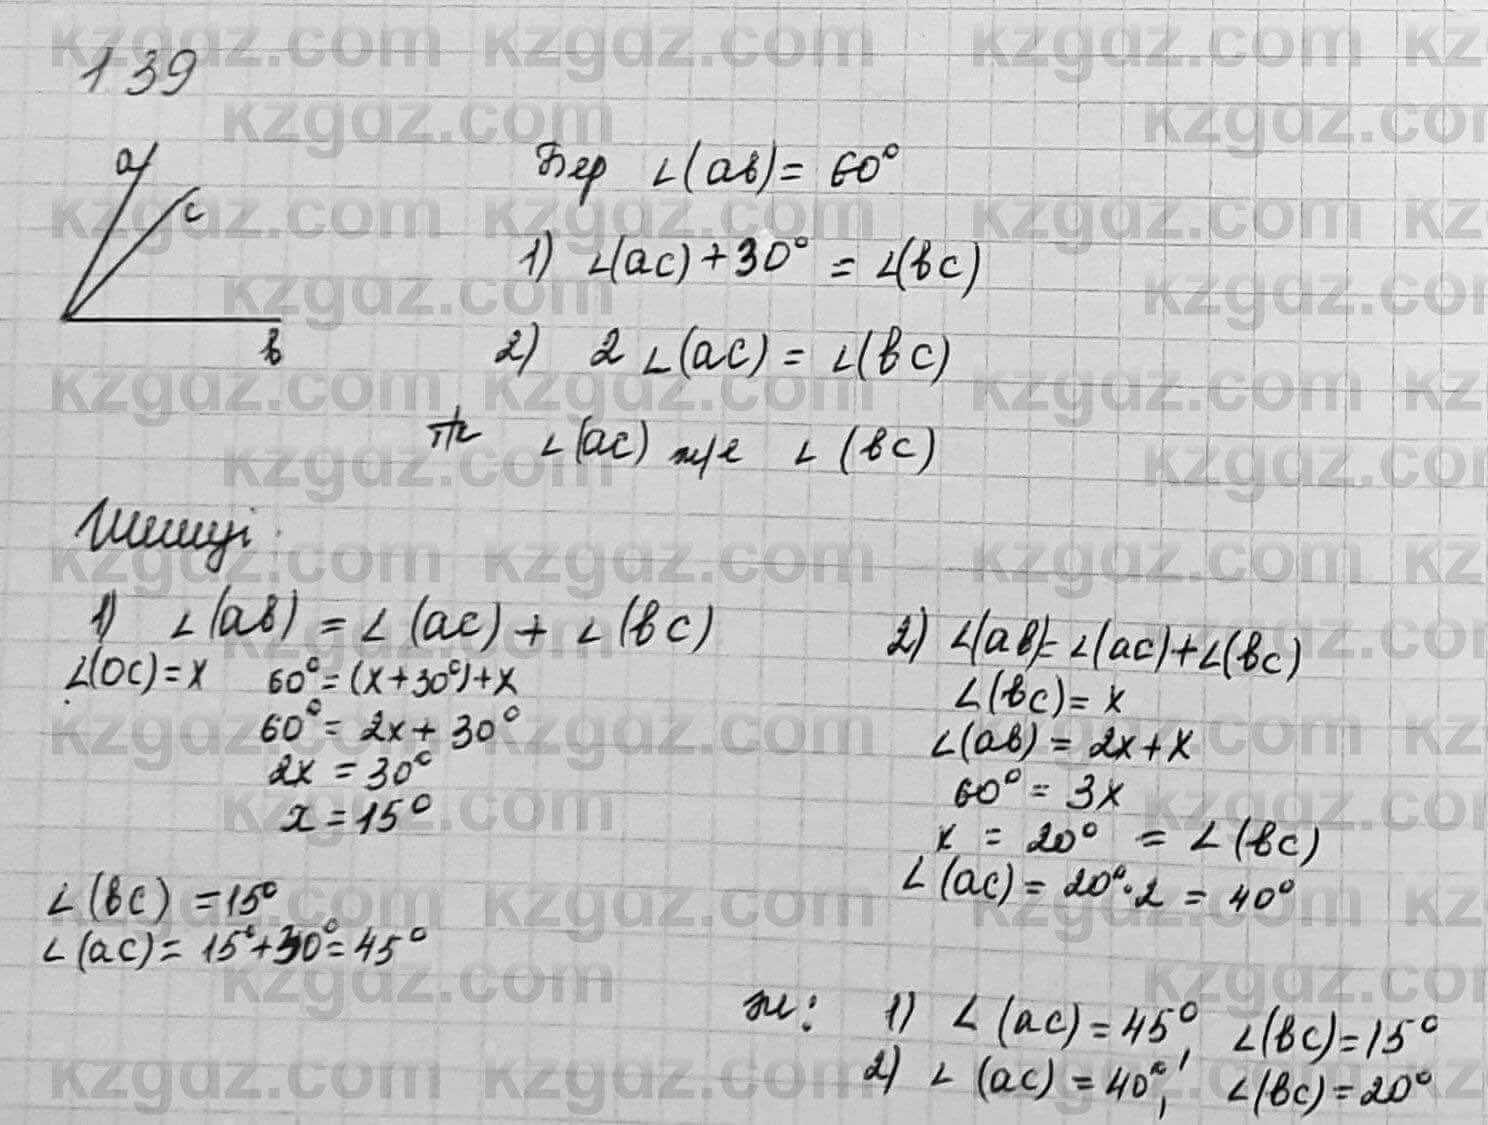 139
a
c
в
Бер ∠(ав) = 60°
1) ∠(ac) + 30° = ∠(вc)
2) 2 ∠(ac) = ∠(вc)
т/к ∠(ac) ж/е ∠(вc)
Шешуі:
1) ∠(ав) = ∠(ac) + ∠(вc)
∠(вc) = x 60° = (x + 30°) + x
60° = 2x + 30°
2x = 30°
x = 15°
∠(вc) = 15°
∠(ac) = 15° + 30° = 45°
2) ∠(ав) = ∠(ac) + ∠(вc)
∠(вc) = x
∠(ав) = 2x + x
60° = 3x
x = 20° = ∠(вc)
∠(ac) = 20° · 2 = 40°
ж: 1) ∠(ac) = 45°, ∠(вc) = 15°
2) ∠(ac) = 40°, ∠(вc) = 20°
kzgdz.com